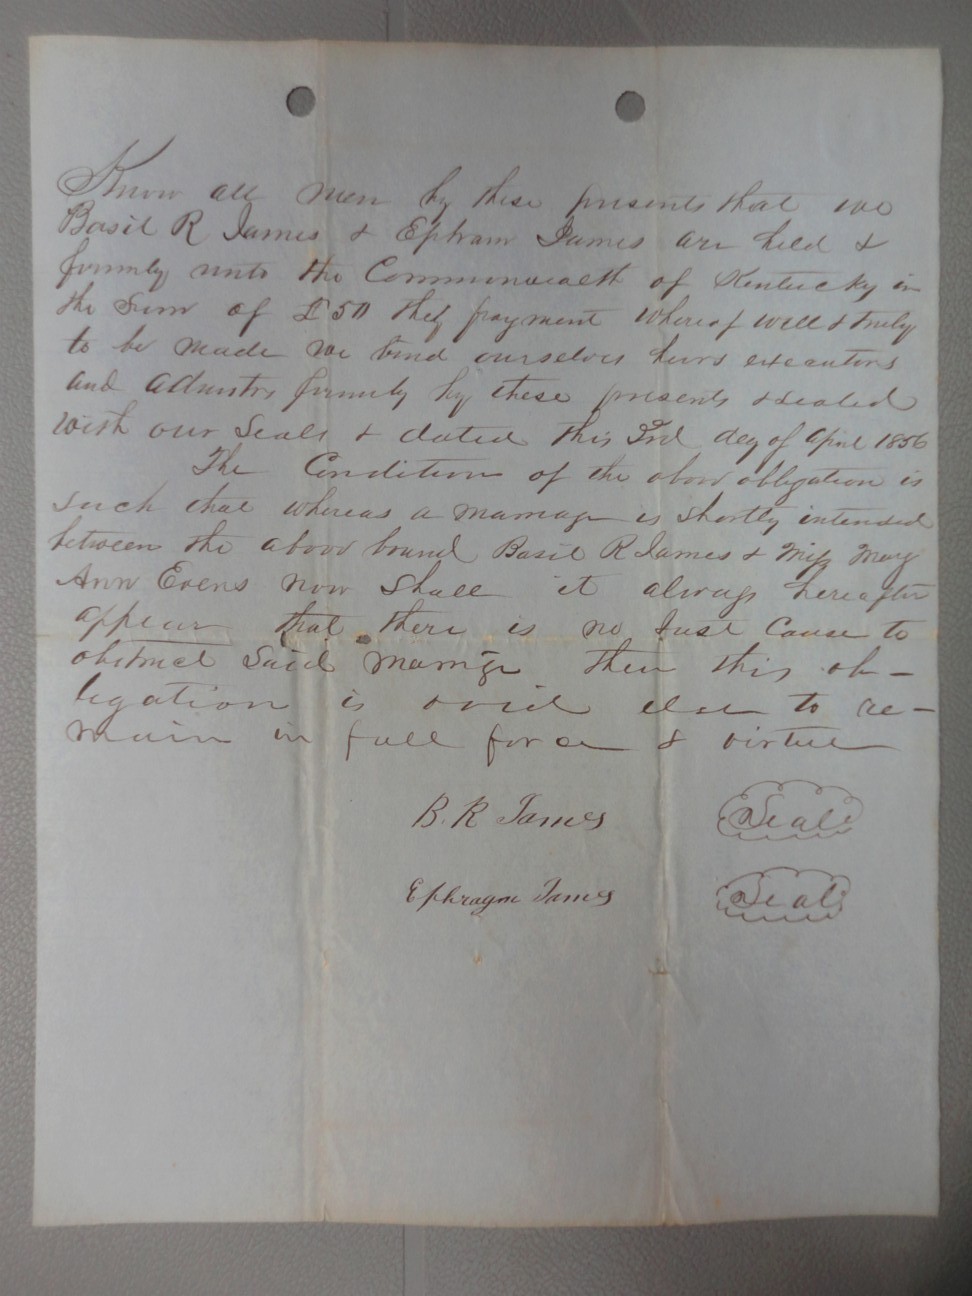 Know all men by these presents that we
Basil R James & Ephram James are held &
firmly unto the Commonwealth of Kentucky in
the Sum of £50 the payment whereof well & truly
to be made we bind ourselves heirs executors
and Admtrs firmly by these presents & sealed
with our Seals & dated this 3rd day of April 1856
The Condition of the above obligation is
such that whereas a marriage is shortly intended
between the above bound Basil R James & Miss Mary
Ann Evens now shall it always hereafter
appear that there is no Just Cause to
obstruct Said Marrige then this ob-
ligation is void else to re-
main in full force & virtue
B. R James Seal
Ephragm James Seal